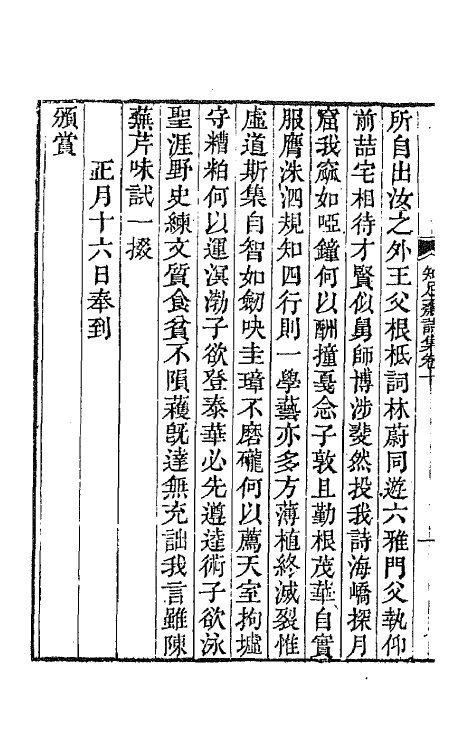 知足齋詩集卷十
一
所自出汝之外王父根柢詞林蔚同遊六雅門父執仰
前喆宅相待才賢似舅師博涉斐然投我詩海嶠探月
窟我窾如啞鐘何以酬撞戞念子敦且勤根茂華自實
服膺洙泗規知四行則一學藝亦多方薄植終滅裂惟
虛道斯集自智如劒吷圭璋不磨礲何以薦天室拘墟
守糟粕何以運溟渤子欲登泰華必先遵逵術子欲泳
聖涯野史練文質食貧不隕穫旣達無充詘我言雖陳
蕪芹味試一掇
正月十六日奉到
頒賞